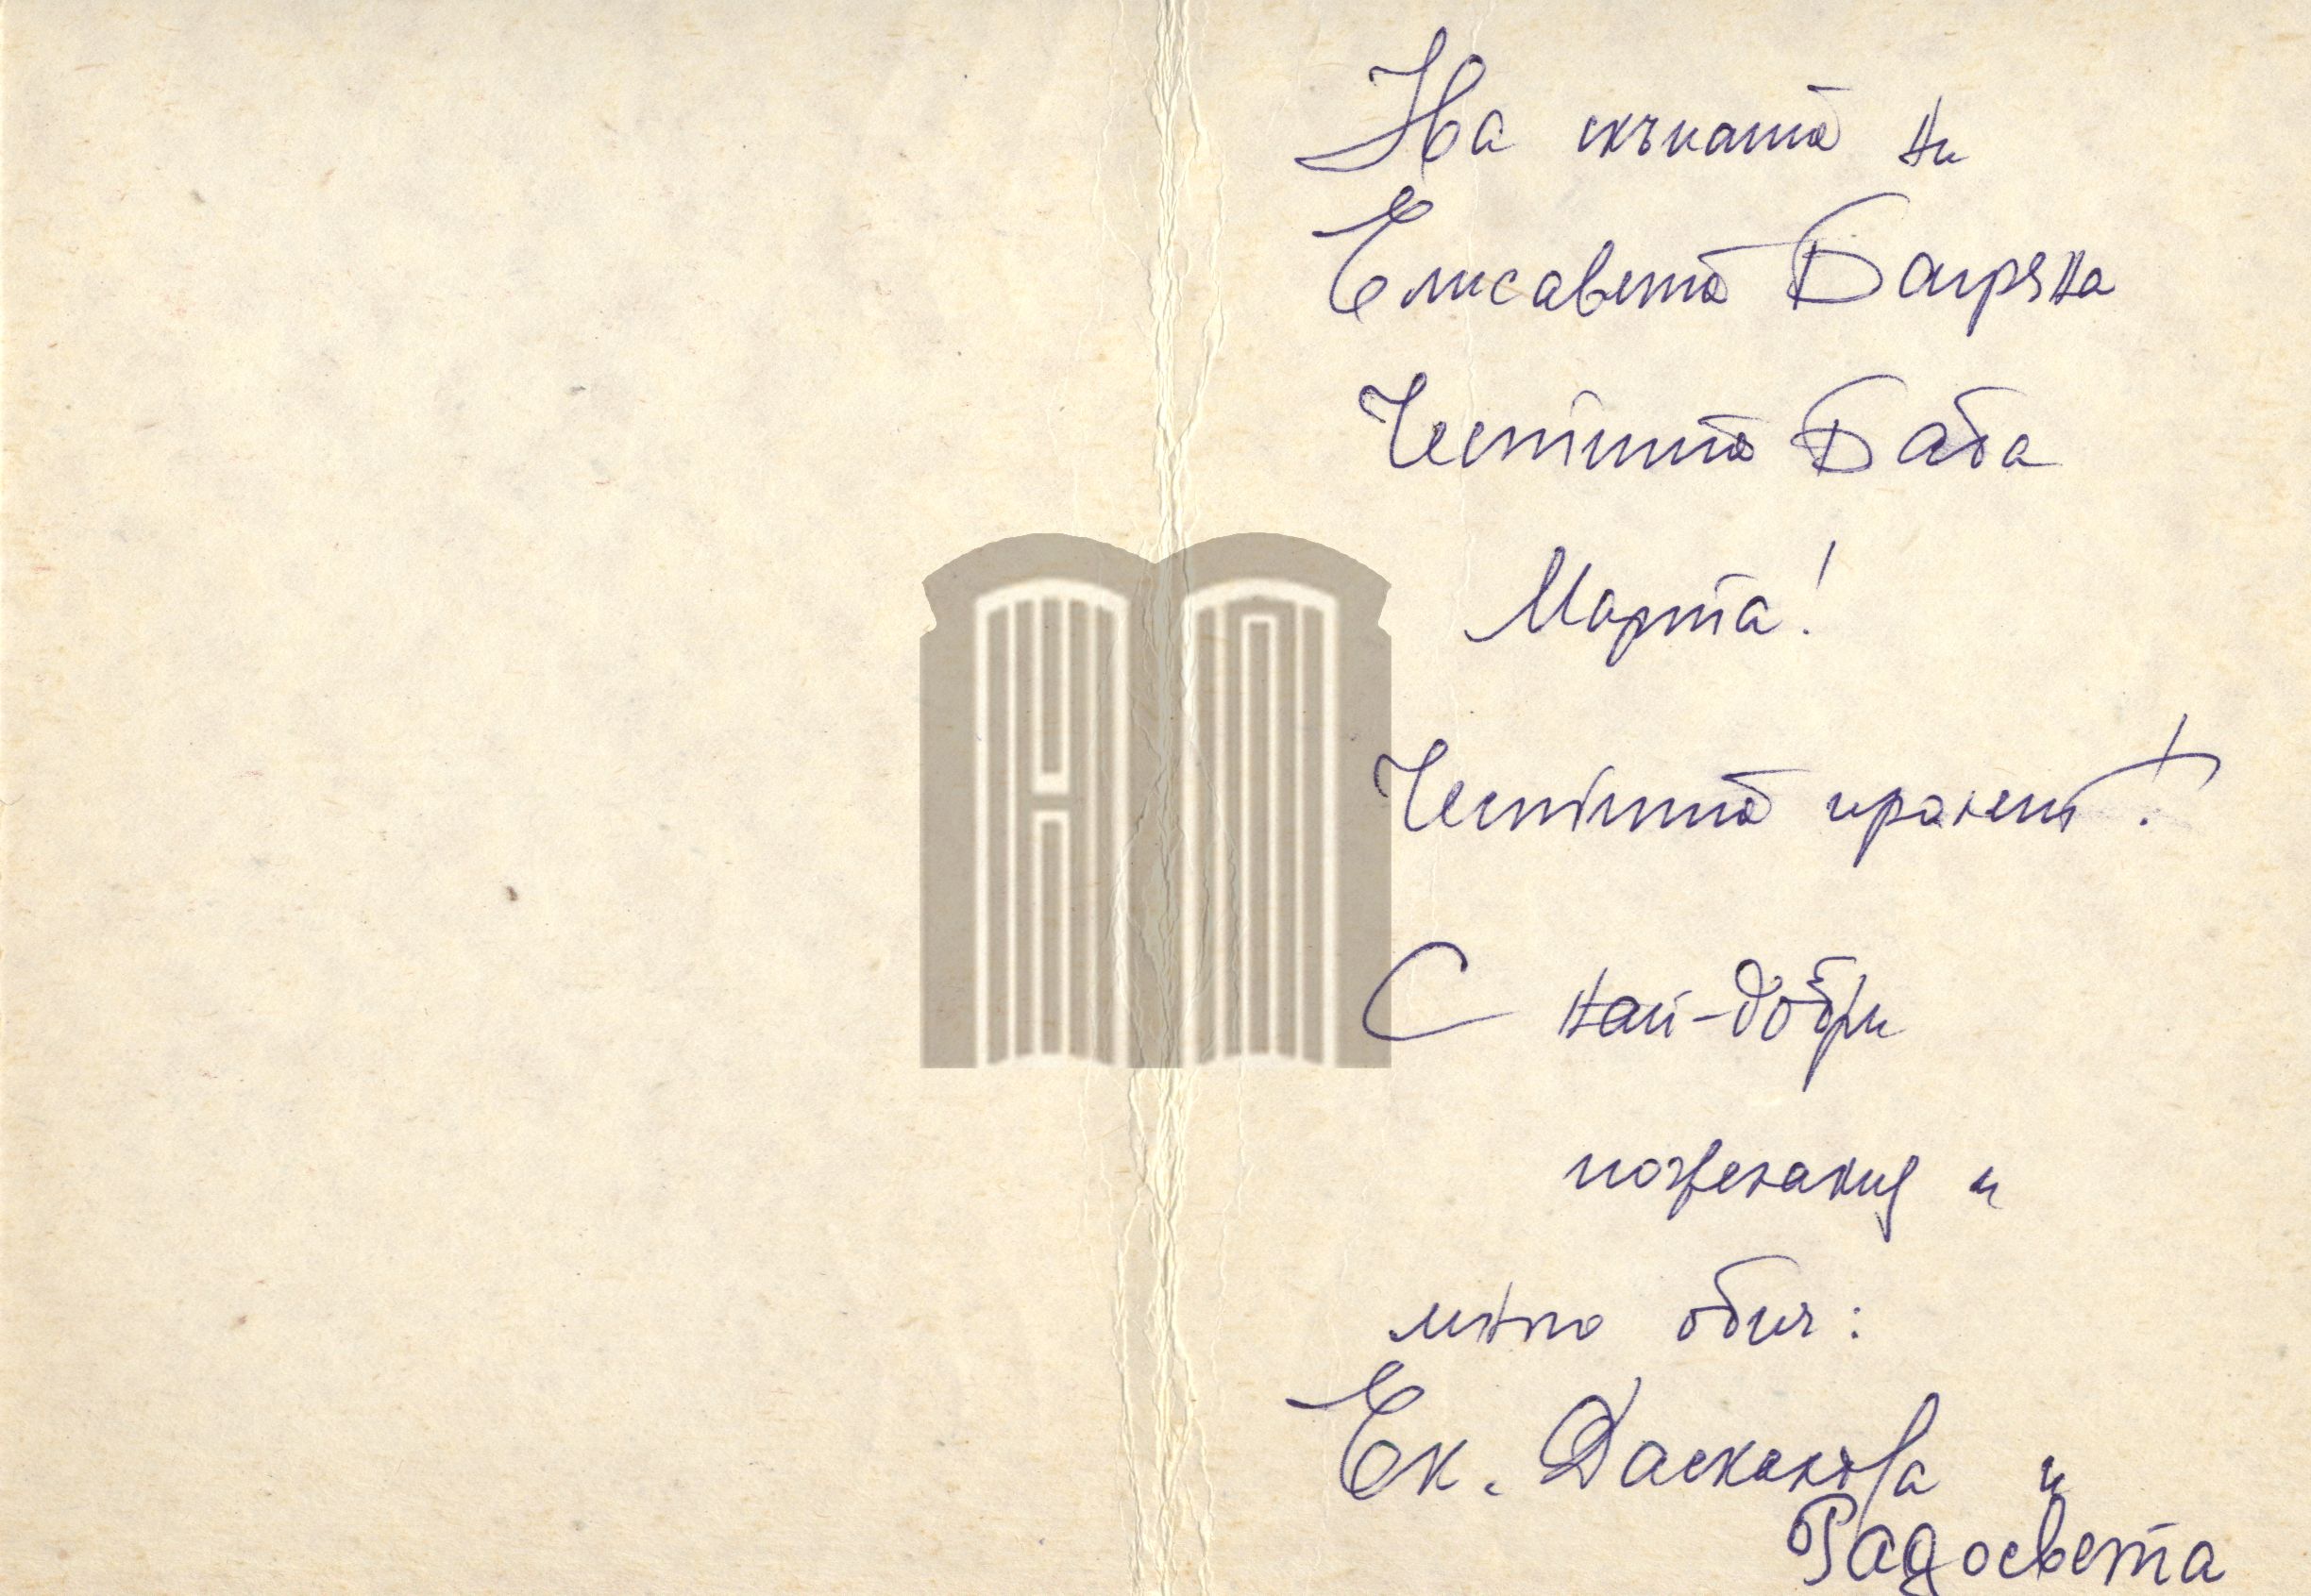 На скъпата ни
Елисавета Багряна
Честита Баба
Марта!
Честита пролет!
С най-добри
пожелания и
много обич:
Ек. Даскалова и
Радосвета